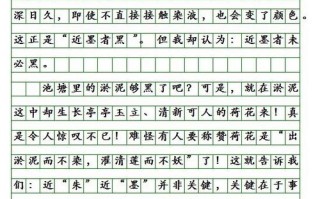 深日久，即使不直接接触染液，也会变了颜色。
这正是“近墨者黑”。但我却认为：近墨者未
必黑。
池塘里的淤泥够黑了吧？可是，就在淤泥
这中却生长亭亭玉立、清新可人的荷花来！真
是令人惊叹不已！难怪有人要称赞荷花是“出
淤泥而不染，濯清莲而不妖”了！这就告诉我
们：近“朱”近“墨”并非关键，关键在于事